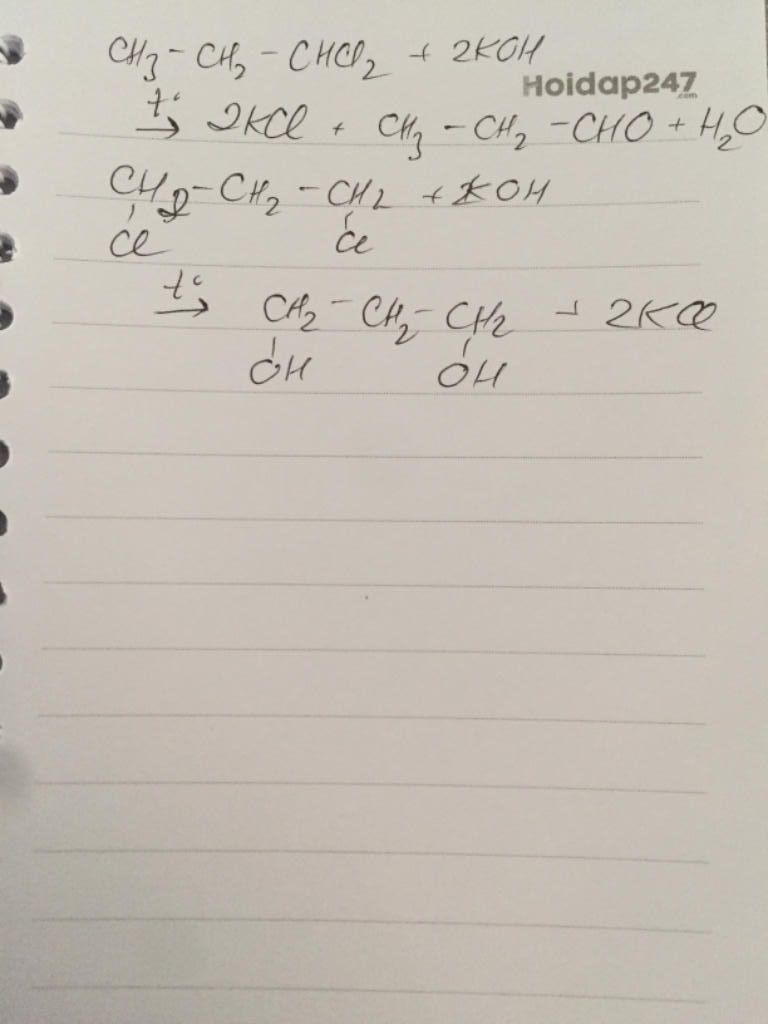 CH3 - CH2 - CHCl2 + 2KOH
Hoidap247
.com
t° → 2KCl + CH3 - CH2 - CHO + H2O
CH2 - CH2 - CH2 + 2KOH
Cl Cl
t° → CH2 - CH2 - CH2 + 2KCl
OH OH